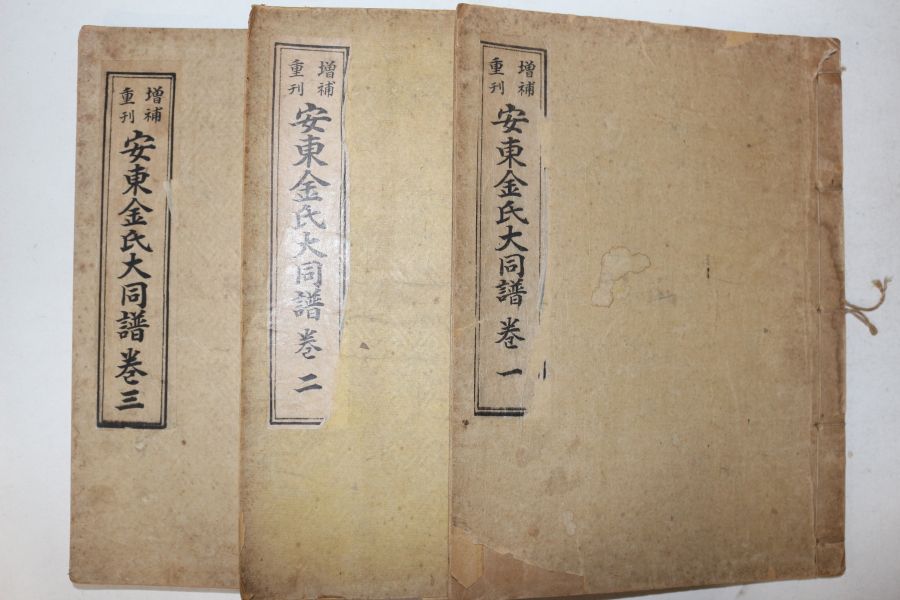 增補
重刊
安東金氏大同譜 卷一
增補
重刊
安東金氏大同譜 卷二
增補
重刊
安東金氏大同譜 卷三